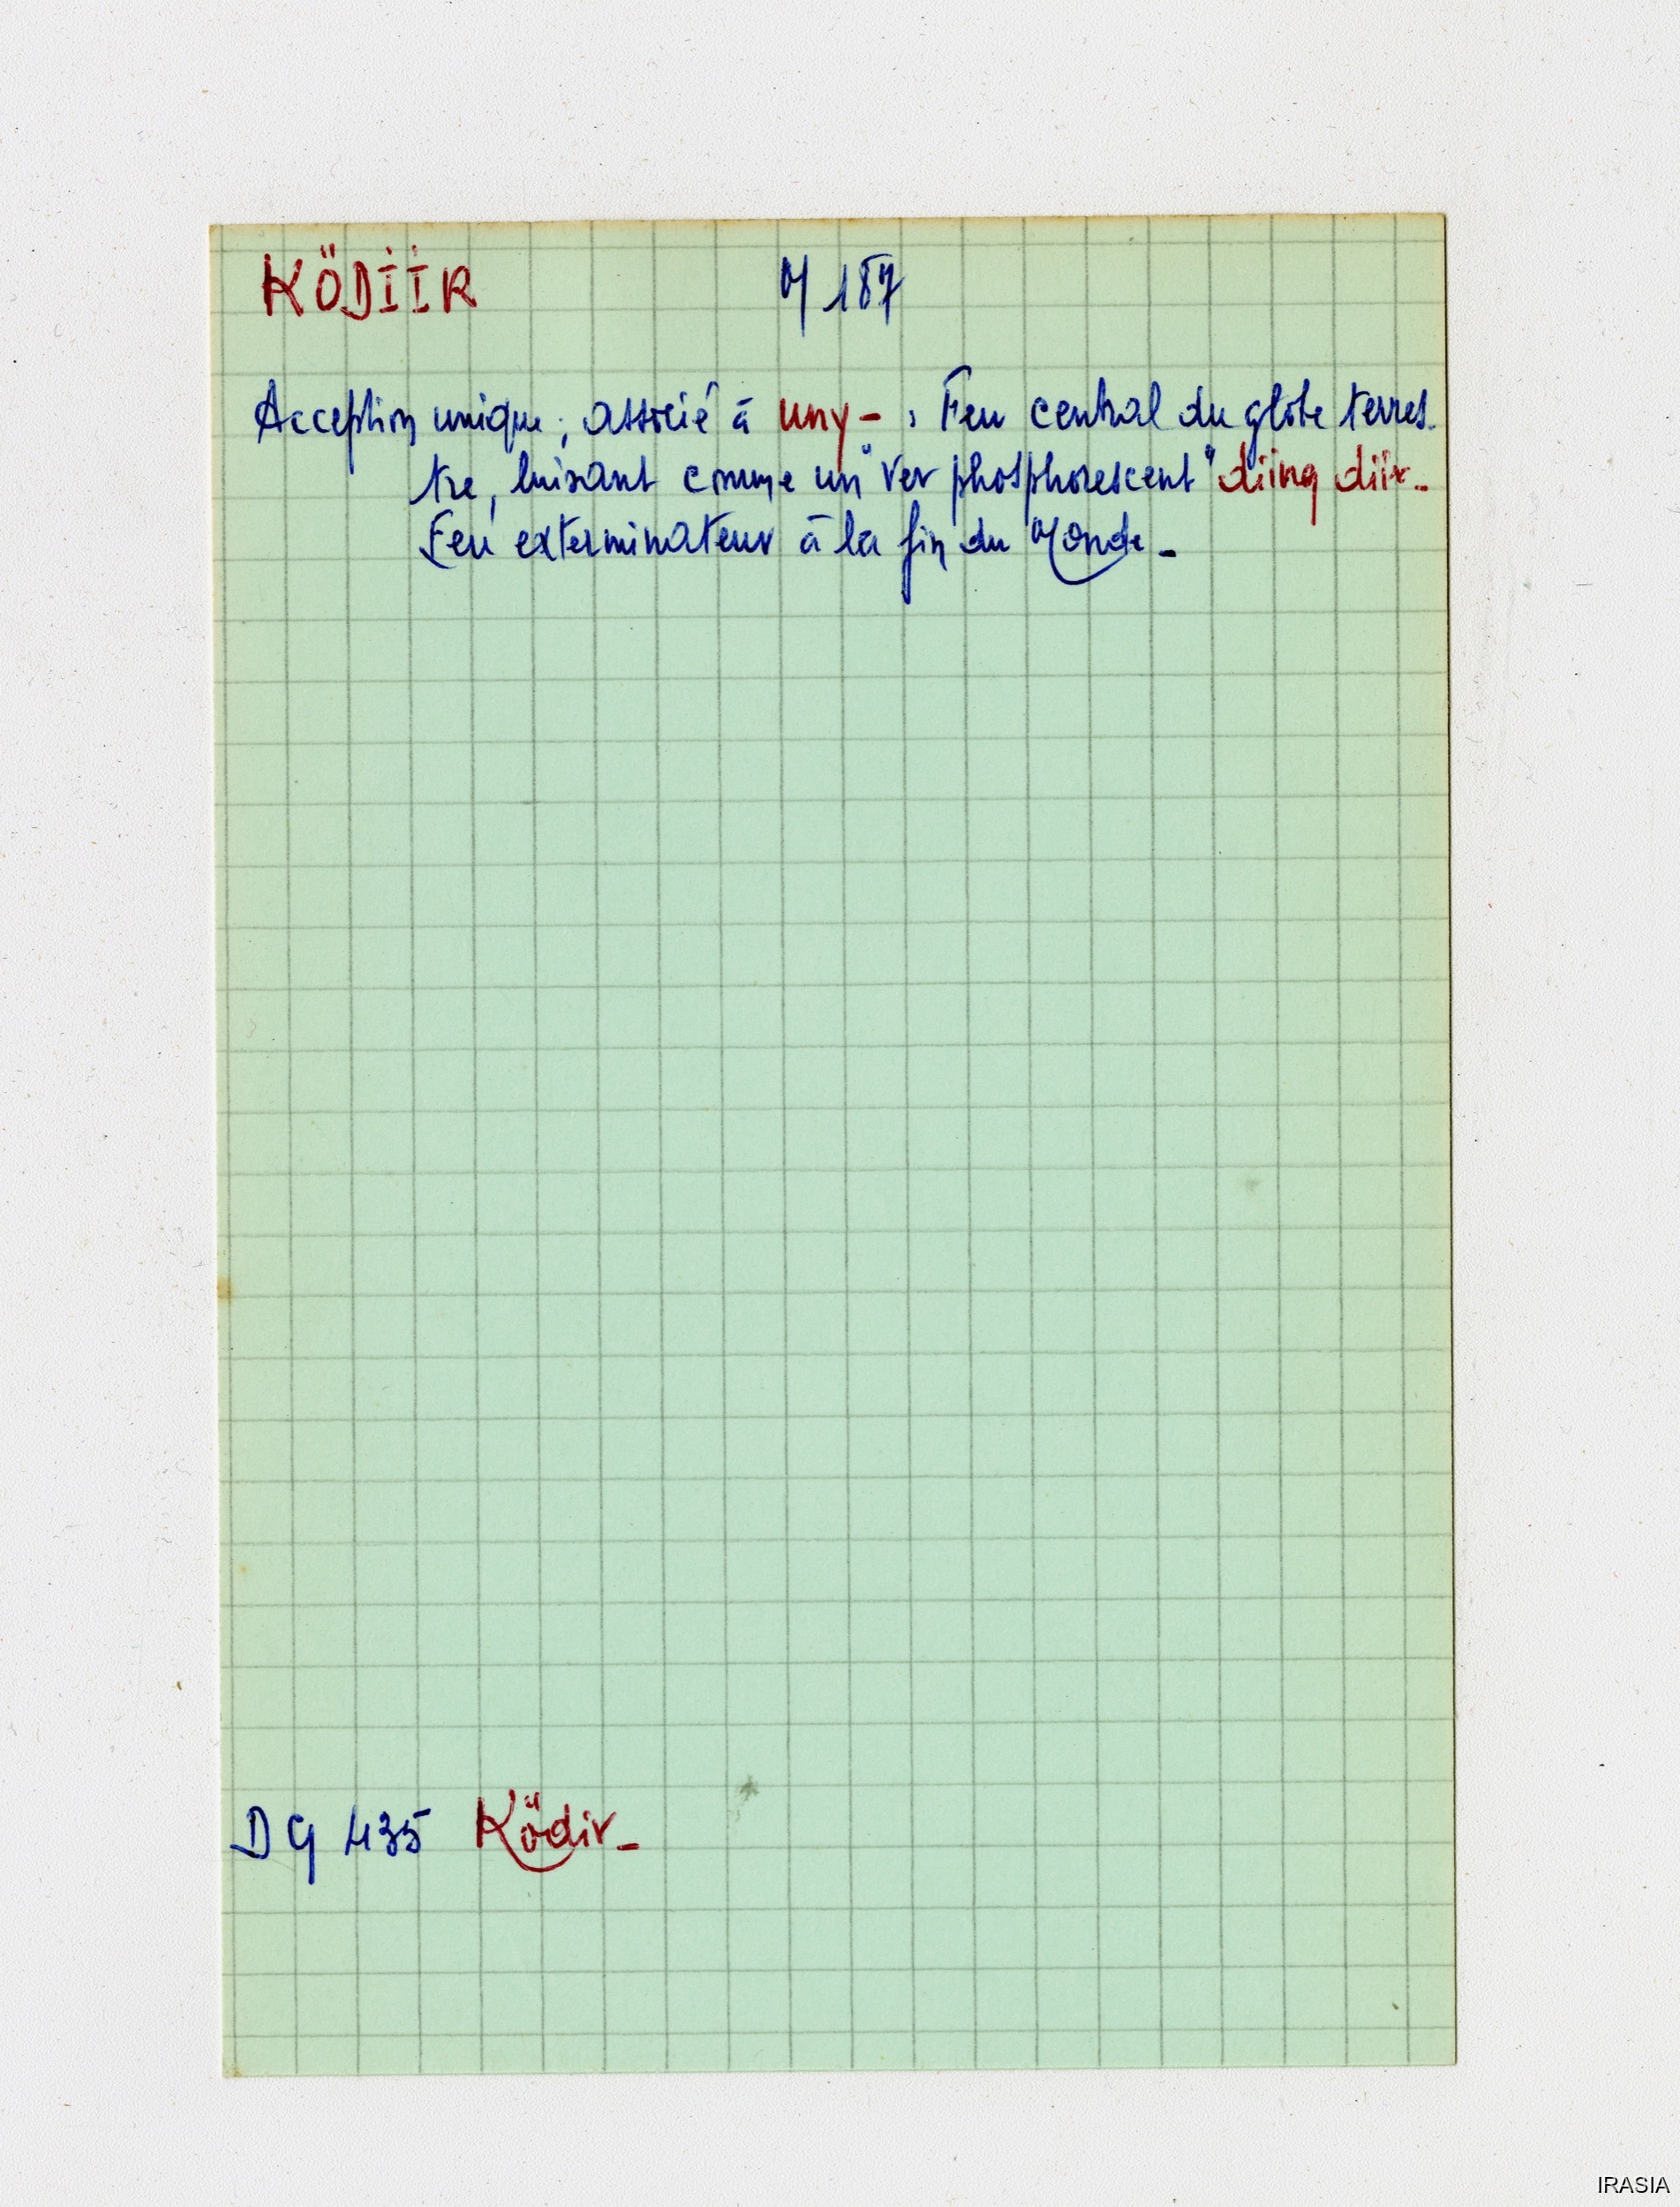 KÖDİİR M 187
Acception unique; associé à uny- : Feu central du globe terres-
tre, luisant comme un "ver phosphorescent" diing diir.
Feu exterminateur à la fin du Monde -
DG 435 Ködir -
IRASIA